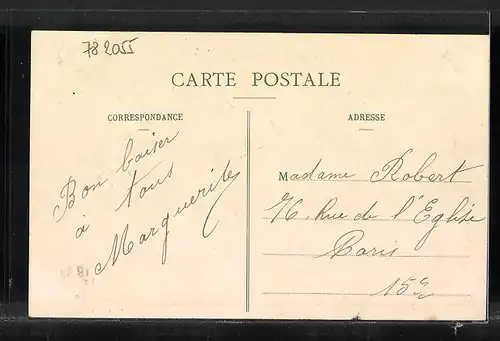 78 2055
CARTE POSTALE
CORRESPONDANCE
ADRESSE
Bon baiser
à tous
Marguerite
Madame Robert
76, Rue de l'Eglise
Paris
15e